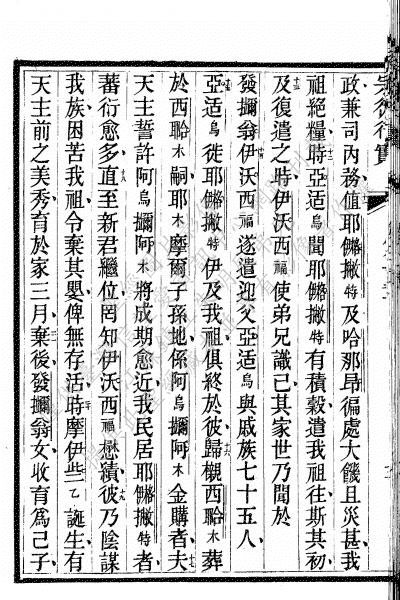 宗徒行實
政兼司內務值耶撇特及哈那昂徧處大饑且災甚我
祖絕糧時亞适烏聞耶撇特有積穀遣我祖往斯其初
及復遣之時伊沃西福使弟兄識己其家世乃聞於
發攦翁伊沃西福遂遣迎父亞适烏與戚族七十五人
亞适烏徙耶撇特伊及我祖俱終於彼歸櫬西木葬
於西木嗣耶木摩爾子孫地係阿烏攦阿木金購者夫
天主誓許阿烏攦阿木將成期愈近我民居耶撇特者
蕃衍愈多直至新君繼位罔知伊沃西福懋績彼乃陰謀
我族困苦我祖令棄其嬰俾無存活時摩伊些乙誕生有
天主前之美秀育於家三月棄後發攦翁女收育爲己子